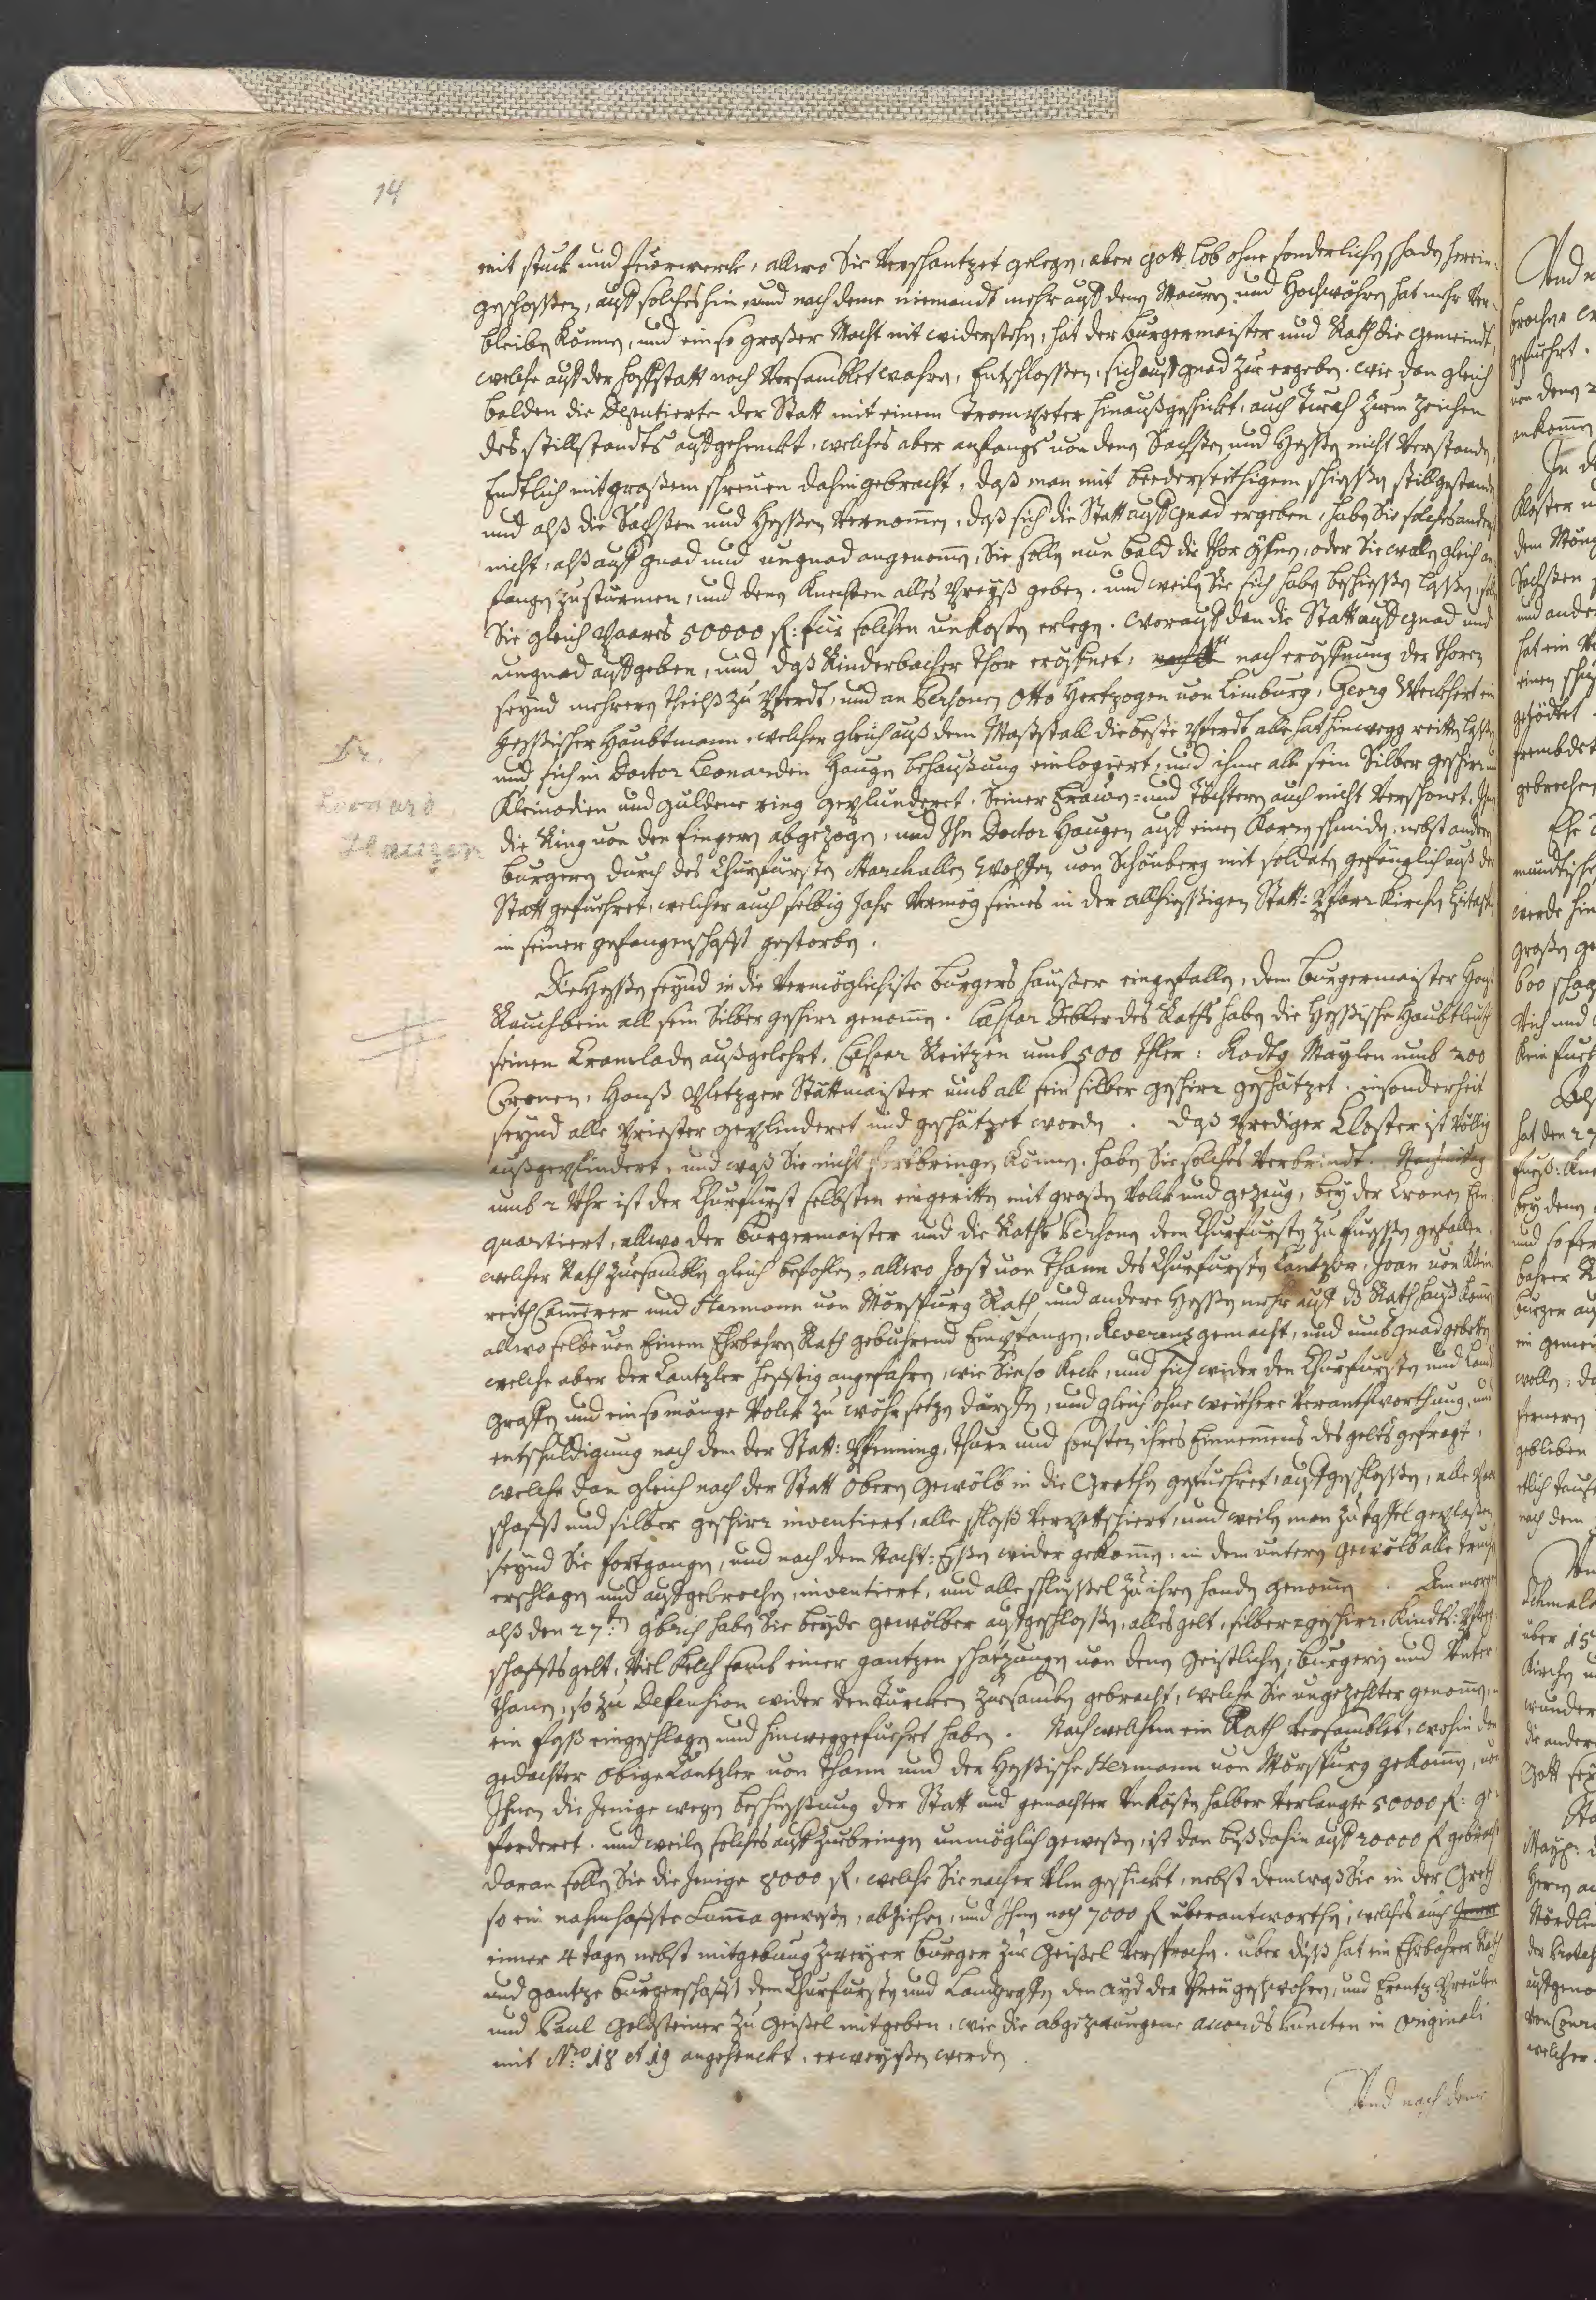 14
mit stuck und feürwerck, allwo Sie Verschantzet gelegen, aber Gott Lob ohne sonderlichen schaden herein-
geschossen, auff solches hin und nach deme niemandt mehr auff denen Mauren und Hochwöhren hat mehr Ver-
bleiben können, und ein so grosser Macht nit widerstehen, hat der burgermaister und Rath die gemeindt,
welche auff der Hoffstatt noch Versamblet wahren, Entschlossen, sich auff gnad zu ergeben. wie dan gleich
balden die Deputierte der Statt mit einem Trompeter hinaußgeschickt, auch Tuech zum Zeichen
des stillstandts außgehenckt, welches aber anfangs von denen Sachsen und Hessen nicht Verstanden,
Endtlich mit grossem schreuen dahin gebracht, daß man mit beederseithigem schiessen stillgestanden
und alß die Sachsen und Hessen Vernommen, daß sich die Statt auff gnad ergeben, haben Sie solches anderst
nicht, alß auff gnad und ungnad angenommen, Sie sollen nun bald die Thor öffnen, oder Sie wollen gleich an-
fangen zu stürmen, und denen Knechten alles Preyß geben. und weilen Sie sich haben beschiessen lassen, sollen
Sie gleich Paares 50000 fl: für solchen unkosten erlegen. worauff dan die Statt auff gnad und
ungnad auffgeben, und daß Rinderbacher Thor eröffnet, nach eröffnung der Thoren
seynd mehreren theilß zu Pferdt, und an Persohnen Otto Hertzogen von Limburg, Georg Weckhert ein
Hessischer Haubtmann, welcher gleich auß dem Maststall die beste Pferdt alle hat hinwegg reitten lassen,
und sich in Doctor Leonarden Haugen behaußung einlogiert, und ihme all sein Silber geschirr
Kleinodien und guldene ring geplunderet, Seiner Frawen- und Töchtern auch nicht Verschonet, Ihn
die Ring von den Fingern abgezogen, und Ihn Doctor Haugen auff einen Karren schmiden, nebst anderen
burgern durch des Churfürsten Marchallen Wolffen von Schönberg mit soldaten gefänglich auß der
Statt geführet, welcher auch selbig Jahr Vermög seines in der allhiessigen Statt: Pfarr Kirchen Epitaph
in seiner gefangenschafft gestorben.
Dr.
Leonard
Haugen
Die Hessen seynd in die Vermöglichiste burgers häußer eingefallen, dem burgermaister Hanß
Rauchbein all sein Silber geschirr genommen. Caspar Debler des Raths haben die Hessische Haubtleuth
seinen Cramladen außgelehrt. Caspar Reitzen umb 500 Thler: Maylen umb 200
Cronen, Hanß Pletzger Stättmaister umb all sein silber geschirr geschätzet. insonderheit
seynd alle Priester geplinderet und geschätzet worden. Daß Prediger Closter ist völlig
außgeplindert, und waß Sie nicht fortbringen können, haben Sie solches Verbrindt. Nachmitag
umb 2 Uhr ist der Churfürst selbsten eingeritten mit grossen Volck und gezeug, bey der Cronen Ein-
quartiert, allwo der burgermaister und die Raths Persohnen dem Churfürsten zu fuessen gefallen,
welcher Rath zusamblen gleich befohlen, allwo Jost von Thann des Churfürsten Cantzler, Joan von
reith Cammerer und Hermann von Mörspurg Rath, und andere Hessen mehr auff dß Rathhauß kommen
allwo selbe von Einem Ehrbahren Rath gebührend Empfangen, Reverenz gemacht, und umb gnad gebetten
welche aber der Cantzler hefftig angefahren, wie Sie so keck, und sich wider den Churfürsten und Land-
graffen und ein so mänge Volck zu wöhr setzen därffen, und gleich ohne weithere Verantworthung, und
entschuldigung nach dem der Statt: Pfenning, Thurn und sonsten ihres Einnemmens des gelts gefragt,
welche dan gleich nach der Statt obern gewölb in die Grethen geführet, auffgeschlossen, alle Par-
schafft und silber geschirr inventiert, alle schloß Verpettschiert, und weilen man zu taffel geplasen
seynd Sie fortgangen, und nach dem Nacht: Essen wider gekommen, in dem untern gewölb alle truch
erschlagen und auffgebrochen, inventiert, und alle schlüssel zu ihren handen genommen. Am morgen
alß den 27:ten 9brich haben Sie beyde gewölber auffgeschlossen, alles gelt, silber-geschirr, Kindts: Pfleg-
schaffts gelt, Viel Kelch samb einer gantzen schatzungen von denen Geistlichen, burgern und Unter-
thanen, so zu Defension wider den Türcken zusamben gebracht, welche Sie ungezehlter genommen, in
ein faß eingeschlagen und hinweggeführt haben. Nach welchem ein Rath Versamblet, wohin der
gedachter obige Cantzler von Thann und der Hessische Hermann von Mörspurg gekommen, und
Ihnen die Jenige wegen beschiessung der Statt und gemachter Unkosten halber Verlangte 50000 fl: ge-
forderet. und weilen solches auffzubringen unmöglich gewesen, ist dan biß dahin auff 20000 fl gebracht
daran sollen Sie die Jenige 8000 fl, welche Sie nacher Ulm geschickt, nebst dem waß Sie in der Greth
so ein nahmhaffte Summa gewesen, abziehen, und Ihnen noch 7000 fl überantworthen, welches auch
inner 4 tagen nebst mitgebung zweyer burger zur Geissel Versprochen. über diß hat ein Ehrbahrer Rath
und gantze burgerschafft dem Churfürsten und Landgraffen den ayd der threu geschwohren, und Frantz Breülen
und Paul Goldsteiner zu Geissel mitgeben, wie die abgezwungene accords Puncten in Originali
mit Nro 18 et 19 angehenckt, erweysen werden
Und nach deme